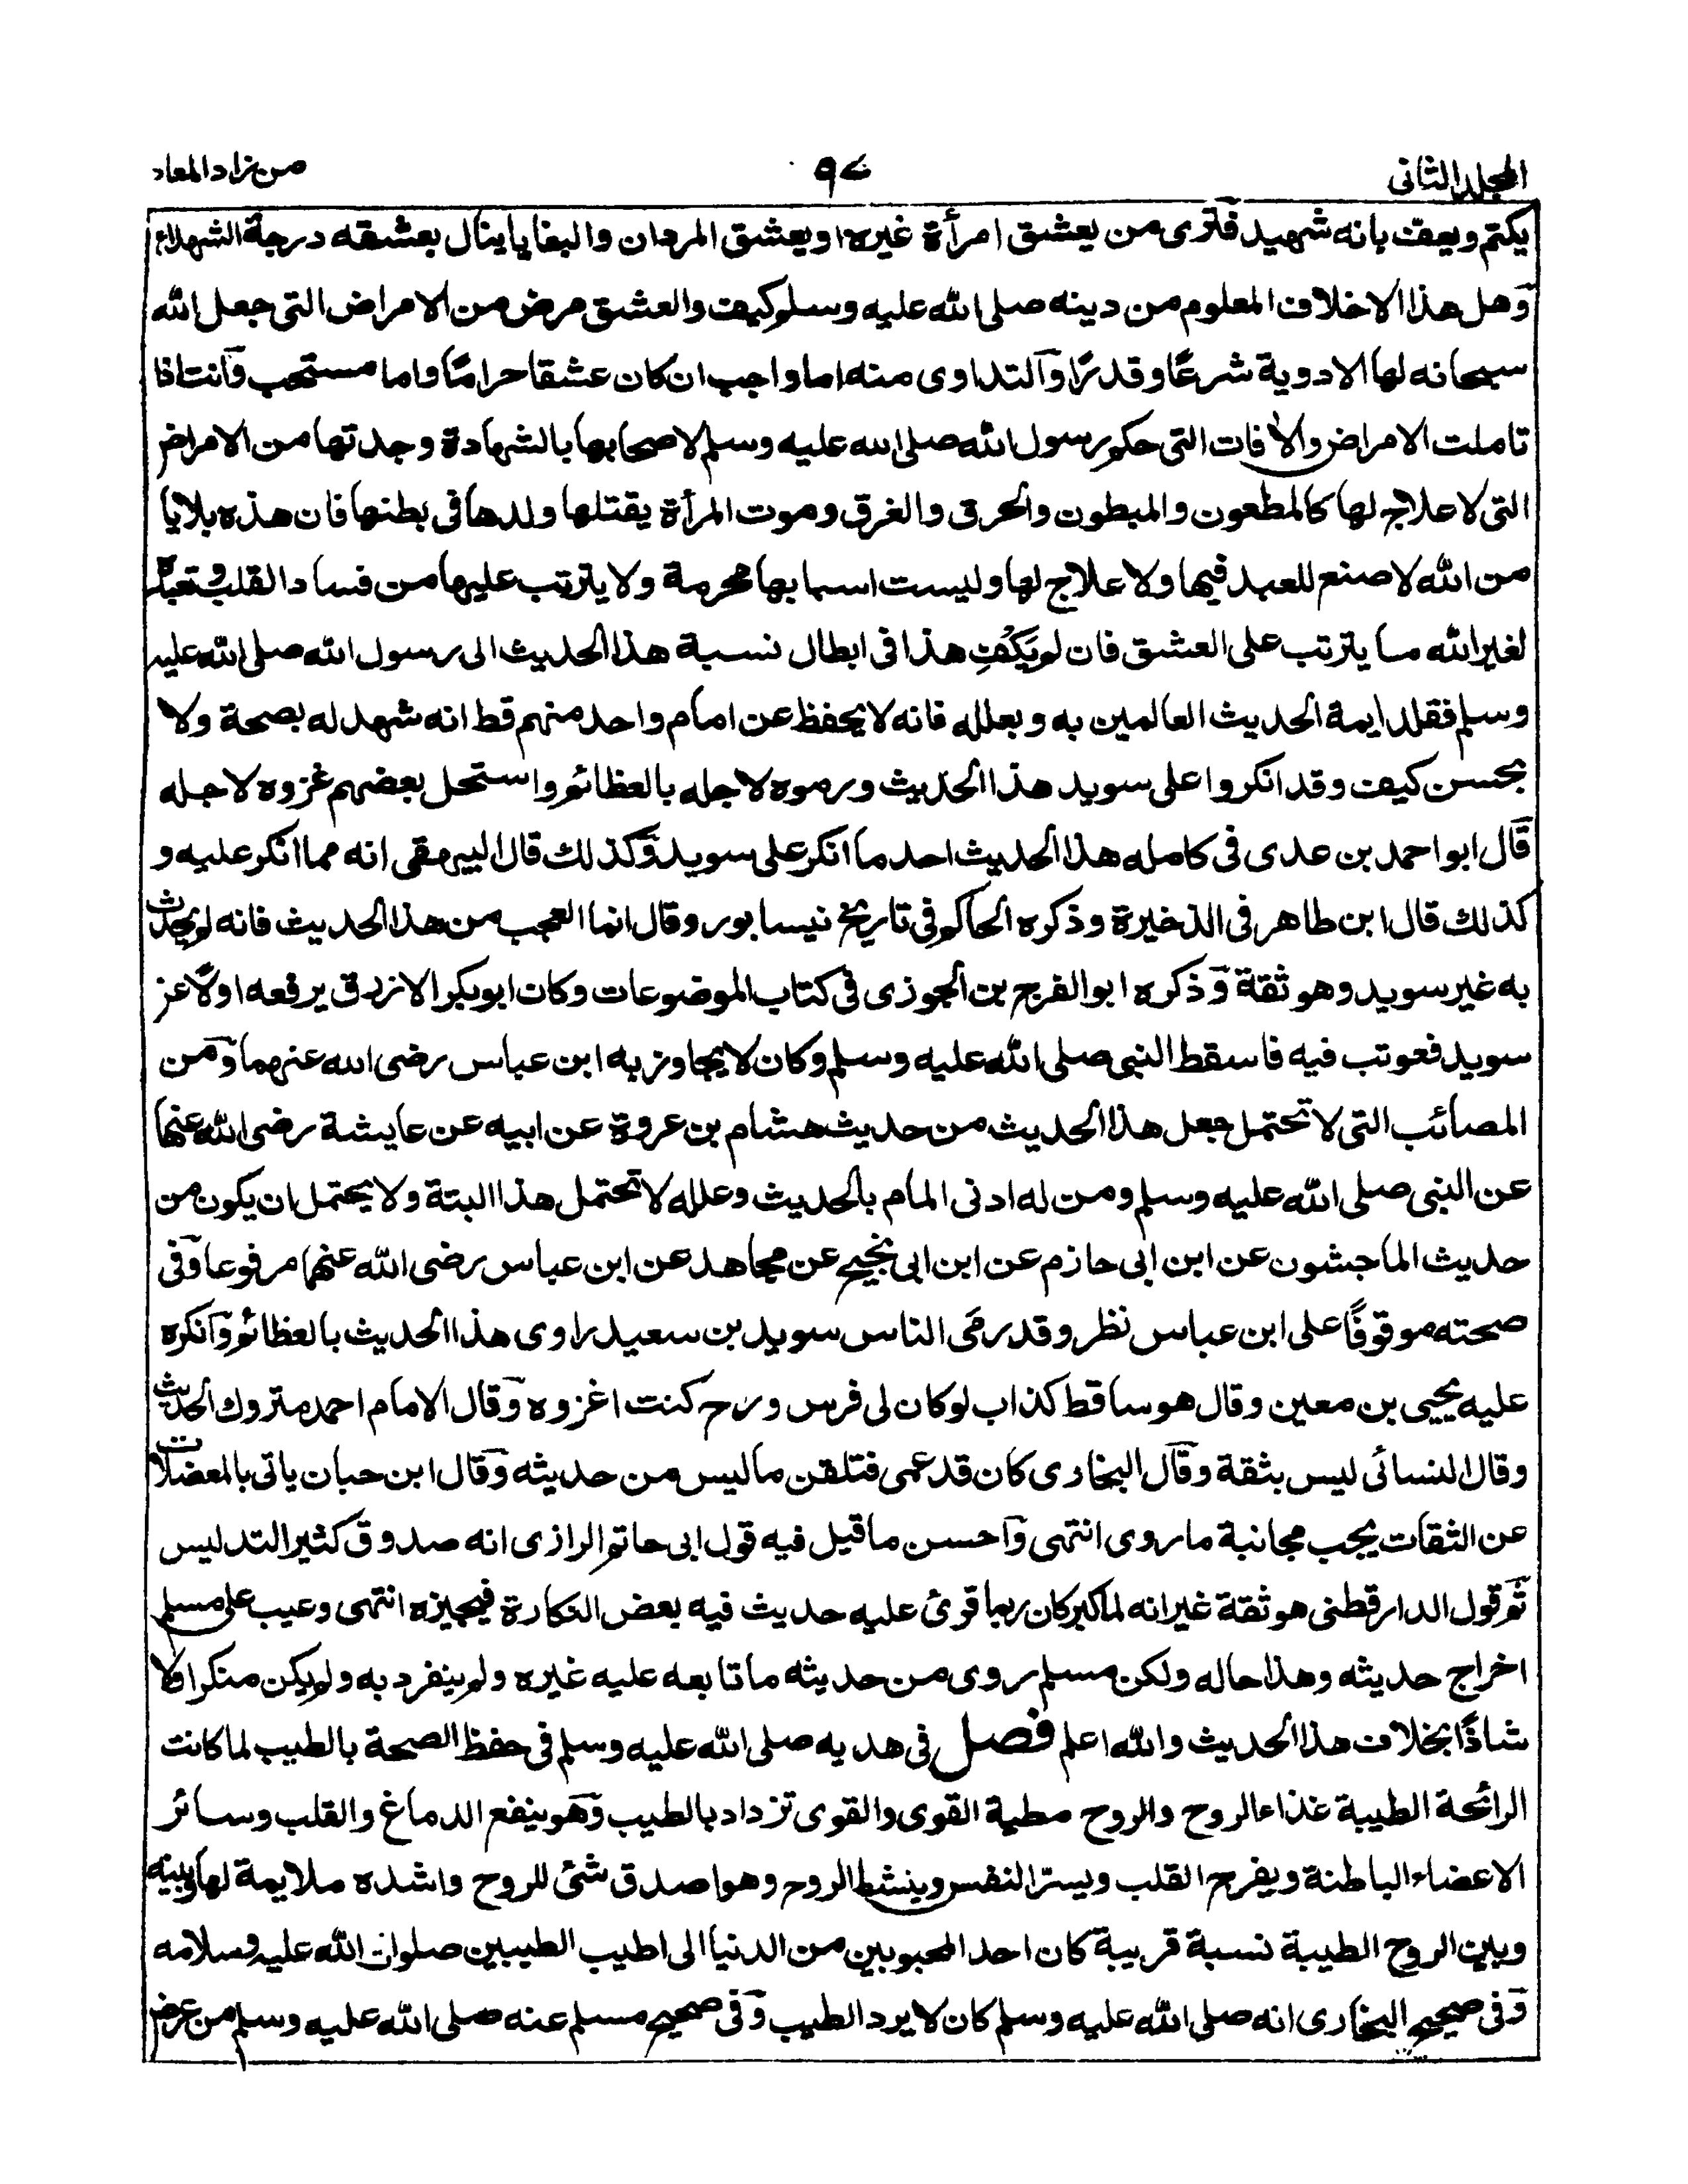 المجلد الثانى
٩٧
من زاد المعاد
يكتم ويعف بانه شهيد فترى من يعشق امرأة غيره او يعشق المردان والبغايا ينال بعشقه درجة الشهداء
وهل هذا الاخلاف المعلوم من دينه صلى الله عليه وسلم كيف والعشق مرض من الامراض التى جعل الله
سبحانه لها الادوية شرعًا وقدرًا والتداوى منه اما واجب ان كان عشقا حرامًا واما مستحب وانت اذا
تاملت الامراض والافات التى حكم رسول الله صلى الله عليه وسلم لاصحابها بالشهادة وجدتها من الامراض
التى لا علاج لها كالمطعون والمبطون والحرقى والغرق وموت المرأة يقتلها ولدها فى بطنها فان هذه بلايا
من الله لا صنع للعبد فيها ولا علاج لها وليست اسبابها محرمة ولا يترتب عليها من فساد القلب وتعبده
لغير الله ما يترتب على العشق فان لم يَكْفِ هذا فى ابطال نسبة هذا الحديث الى رسول الله صلى الله عليه
وسلم فقلد ايمة الحديث العالمين به وبعلله فانه لا يحفظ عن امام واحد منهم قط انه شهد له بصحة ولا
بحسن كيف وقد انكروا على سويد هذا الحديث ورموه لاجله بالعظائم واستحل بعضهم غزوه لاجله
قال ابو احمد بن عدى فى كامله هذا الحديث احد ما انكر على سويد وكذلك قال البيهقى انه مما انكر عليه و
كذلك قال ابن طاهر فى الذخيرة وذكره الحاكم فى تاريخ نيسابور وقال انما العجب من هذا الحديث فانه لم يحدث
به غير سويد وهو ثقة وذكره ابو الفرج بن الجوزى فى كتاب الموضوعات وكان ابو بكر الازرق يرفعه اولًا عن
سويد فعوتب فيه فاسقط النبى صلى الله عليه وسلم وكان لا يجاوز به ابن عباس رضى الله عنهما ومن
المصائب التى لا تحتمل جعل هذا الحديث من حديث هشام بن عروة عن ابيه عن عايشة رضى الله عنها
عن النبى صلى الله عليه وسلم ومن له ادنى المام بالحديث وعلله لا تحتمل هذا البتة ولا يحتمل ان يكون من
حديث الماجشون عن ابن ابى حازم عن ابن ابى نجيح عن مجاهد عن ابن عباس رضى الله عنهما مرفوعا وفى
صحته موقوفًا على ابن عباس نظر وقد رمى الناس سويد بن سعيد راوى هذا الحديث بالعظائم وانكره
عليه يحيى بن معين وقال هو ساقط كذاب لو كان لى فرس ورمح كنت اغزوه وقال الامام احمد متروك الحديث
وقال النسائى ليس بثقة وقال البخارى كان قد عمى فتلقن ما ليس من حديثه وقال ابن حبان ياتى بالمعضلات
عن الثقات يجب مجانبة ما روى انتهى واحسن ما قيل فيه قول ابى حاتم الرازى انه صدوق كثير التدليس
ثم قول الدارقطنى هو ثقة غير انه لما كبر كان ربما قرئ عليه حديث فيه بعض النكارة فيجيزه انتهى وعيب على مسلم
اخراج حديثه وهذا حاله ولكن مسلم روى من حديثه ما تابعه عليه غيره ولم ينفرد به ولم يكن منكرا ولا
شاذًا بخلاف هذا الحديث والله اعلم فصل فى هديه صلى الله عليه وسلم فى حفظ الصحة بالطيب لما كانت
الرائحة الطيبة غذاء الروح والروح مطية القوى والقوى تزداد بالطيب وهو ينفع الدماغ والقلب وسائر
الاعضاء الباطنة ويفرح القلب ويسرّ النفس وينشط الروح وهو اصدق شئ للروح واشده ملايمة لها وبينه
وبين الروح الطيبة نسبة قريبة كان احد المحبوبين من الدنيا الى اطيب الطيبين صلوات الله عليه وسلامه
وفى صحيح البخارى انه صلى الله عليه وسلم كان لا يرد الطيب وفى صحيح مسلم عنه صلى الله عليه وسلم من عرض